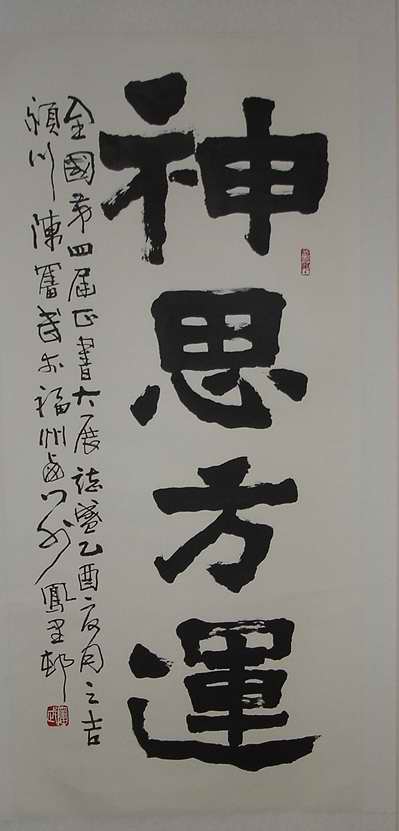 神思方運
全國第四屆正書大展誌盛乙酉夏月之吉
潁川陳奮武於福州門外鳳里邨